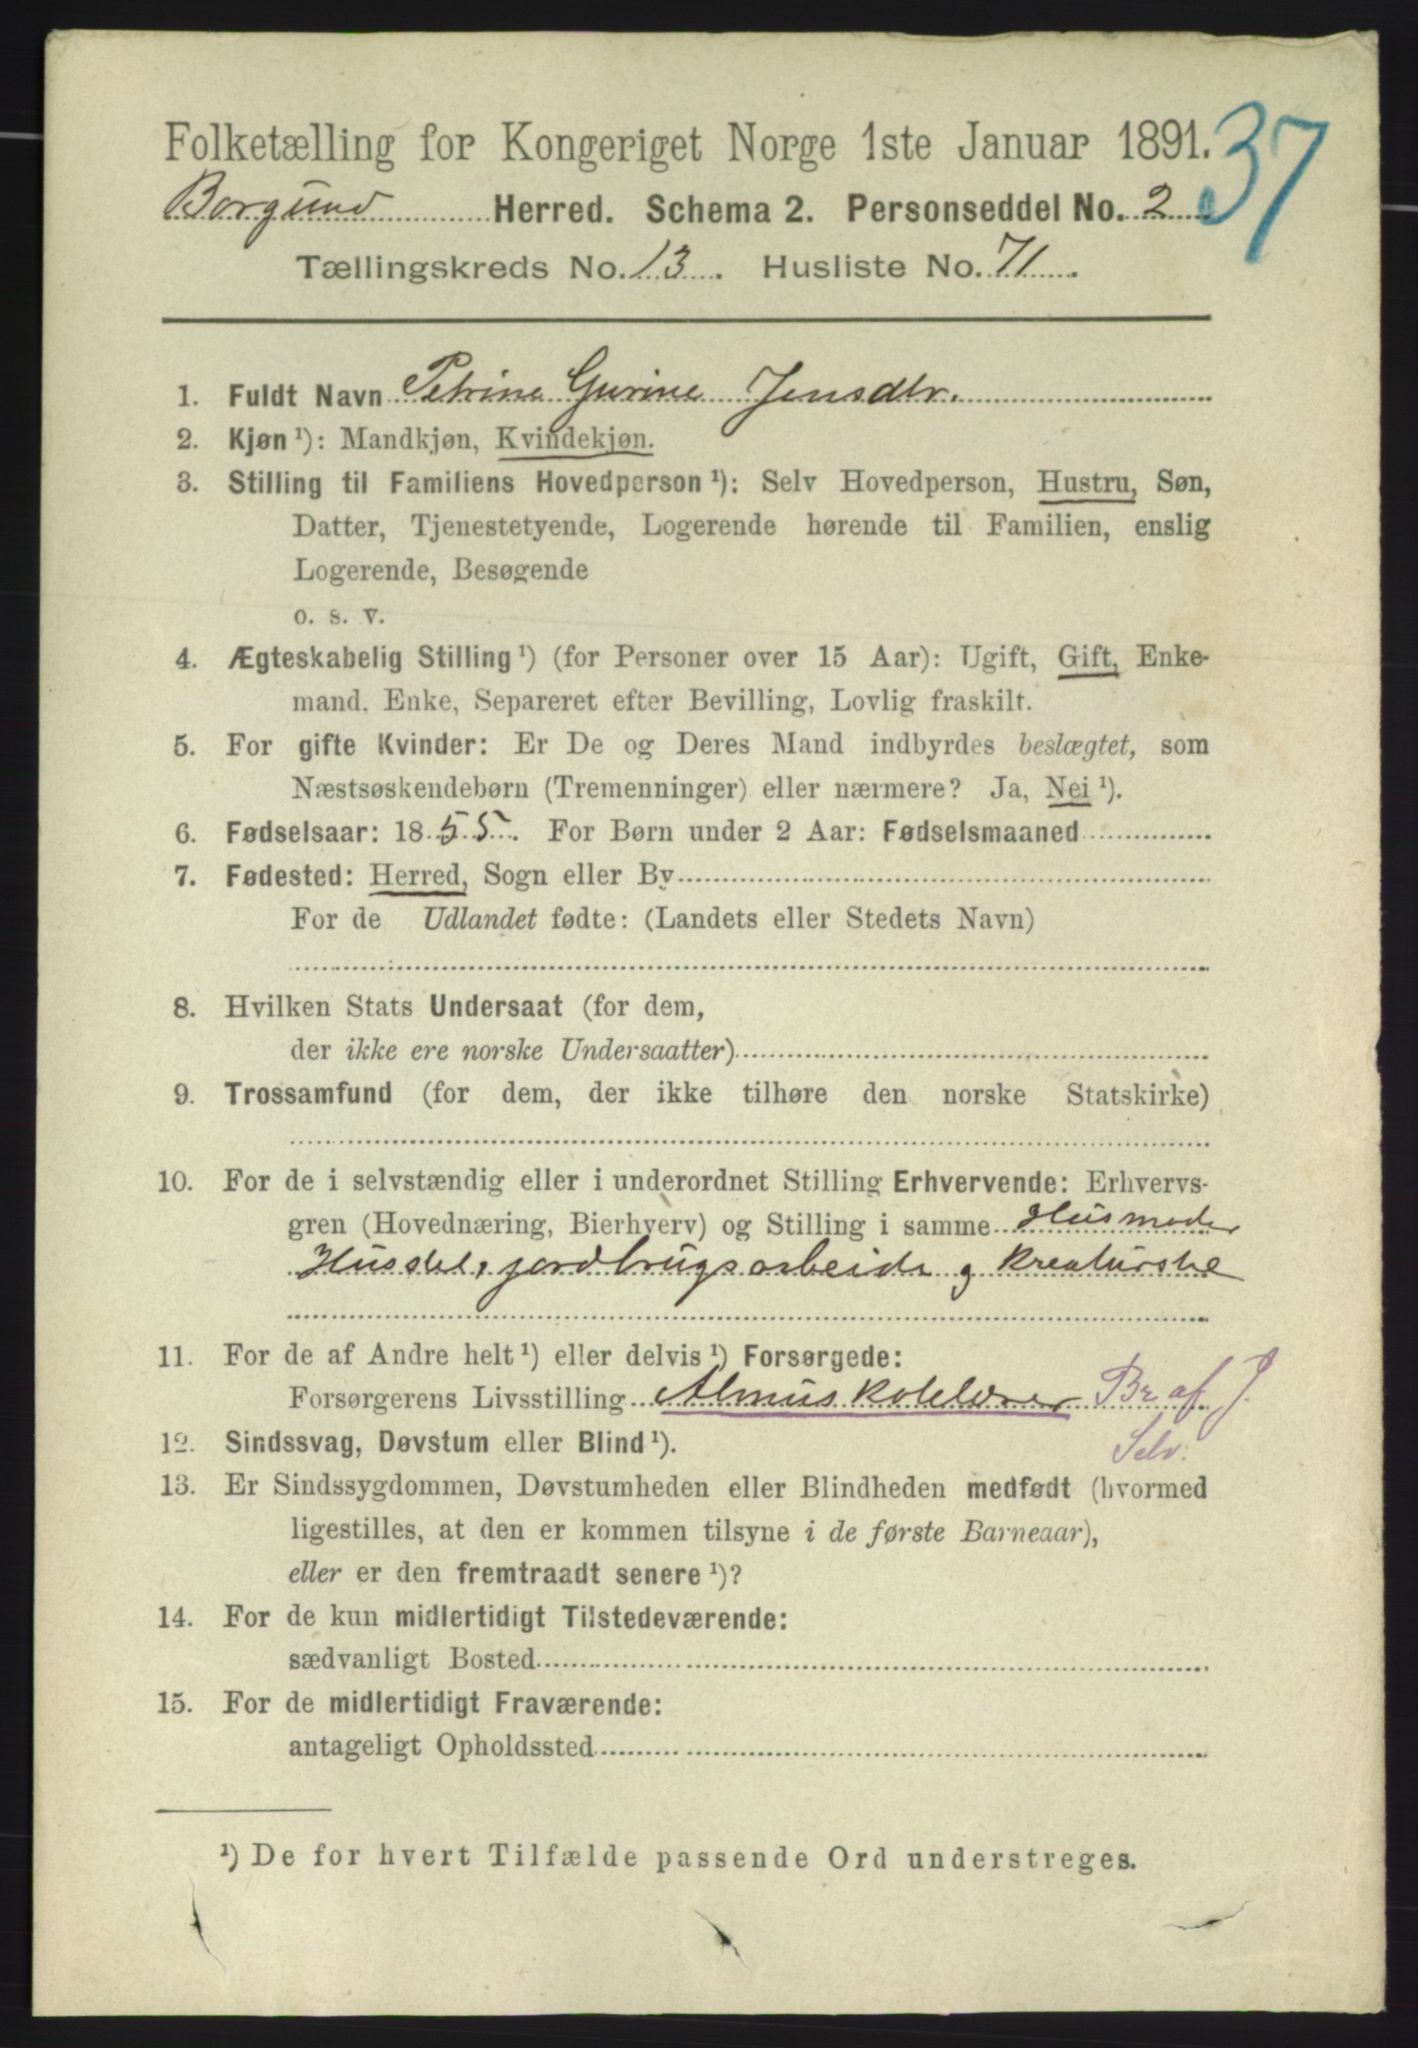 Folketælling for Kongeriget Norge 1ste Januar 1891.
37
Borgund Herred. Schema 2. Personseddel No. 2
Tællingskreds No. 13. Husliste No. 71.
1. Fuldt Navn Petrine Gurine Jensdtr.
2. Kjøn ¹): Mandkjøn, Kvindekjøn.
3. Stilling til Familiens Hovedperson ¹): Selv Hovedperson, Hustru, Søn,
Datter, Tjenestetyende, Logerende hørende til Familien, enslig
Logerende, Besøgende
o. s. v.
4. Ægteskabelig Stilling ¹) (for Personer over 15 Aar): Ugift, Gift, Enke-
mand. Enke, Separeret efter Bevilling, Lovlig fraskilt.
5. For gifte Kvinder: Er De og Deres Mand indbyrdes beslægtet, som
Næstsøskendebørn (Tremenninger) eller nærmere? Ja, Nei ¹).
6. Fødselsaar: 1855. For Børn under 2 Aar: Fødselsmaaned
7. Fødested: Herred, Sogn eller By
For de Udlandet fødte: (Landets eller Stedets Navn)
8. Hvilken Stats Undersaat (for dem,
der ikke ere norske Undersaatter)
9. Trossamfund (for dem, der ikke tilhøre den norske Statskirke)
10. For de i selvstændig eller i underordnet Stilling Erhvervende: Erhvervs-
gren (Hovednæring, Bierhverv) og Stilling i samme Husmoder
Husstel, jordbrugsarbeide g Kreaturstel
11. For de af Andre helt ¹) eller delvis ¹) Forsørgede:
Forsørgerens Livsstilling Almuskolelærer Br af J.
Selv.
12. Sindssvag, Døvstum eller Blind ¹).
13. Er Sindssygdommen, Døvstumheden eller Blindheden medfødt (hvormed
ligestilles, at den er kommen tilsyne i de første Barneaar),
eller er den fremtraadt senere ¹)?
14. For de kun midlertidigt Tilstedeværende:
sædvanligt Bosted
15. For de midlertidigt Fraværende:
antageligt Opholdssted
¹) De for hvert Tilfælde passende Ord understreges.